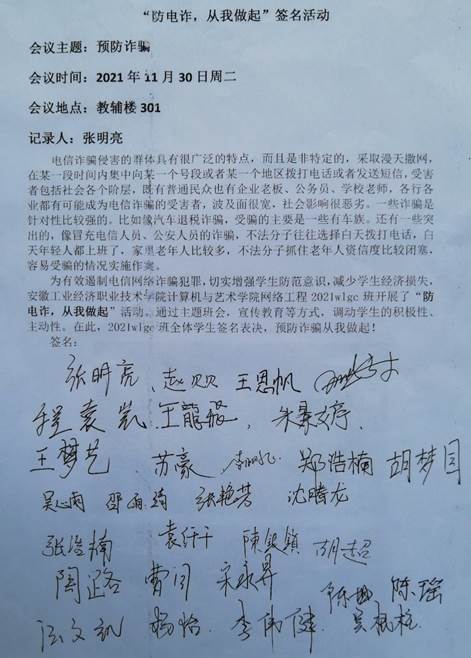 “防电诈，从我做起”签名活动
会议主题：预防诈骗
会议时间：2021年11月30日周二
会议地点：教辅楼301
记录人：张明亮
电信诈骗侵害的群体具有很广泛的特点，而且是非特定的，采取漫天撒网，
在某一段时间内集中向某一个号段或者某一个地区拨打电话或者发送短信，受害
者包括社会各个阶层，既有普通民众也有企业老板、公务员、学校老师，各行各
业都有可能成为电信诈骗的受害者，波及面很宽，社会影响很恶劣。一些诈骗是
针对性比较强的。比如像汽车退税诈骗，受骗的主要是一些有车族。还有一些突
出的，像冒充电信人员、公安人员的诈骗，不法分子往往选择白天拨打电话，白
天年轻人都上班了，家里老人比较多，不法分子抓住老年人资信度比较闭塞，
容易受骗的情况实施作案。
为有效遏制电信网络诈骗犯罪，切实增强学生防范意识，减少学生经济损失，
安徽工业经济职业技术学院计算机与艺术学院网络工程2021wlgc班开展了“防
电诈，从我做起”活动。通过主题班会，宣传教育等方式，调动学生的积极性、
主动性。在此，2021wlgc班全体学生签名表决，预防诈骗从我做起！
签名：
张明亮 赵贝贝 王恩帆
程袁凯 王龍
王梦艺 苏豪 郑浩楠 胡梦月
吴心雨 张艳芳 沈腾龙
张浩楠 袁仟千 胡超
陶璐 曹闯 宋永昇 陈瑶
杨怡 李伟健